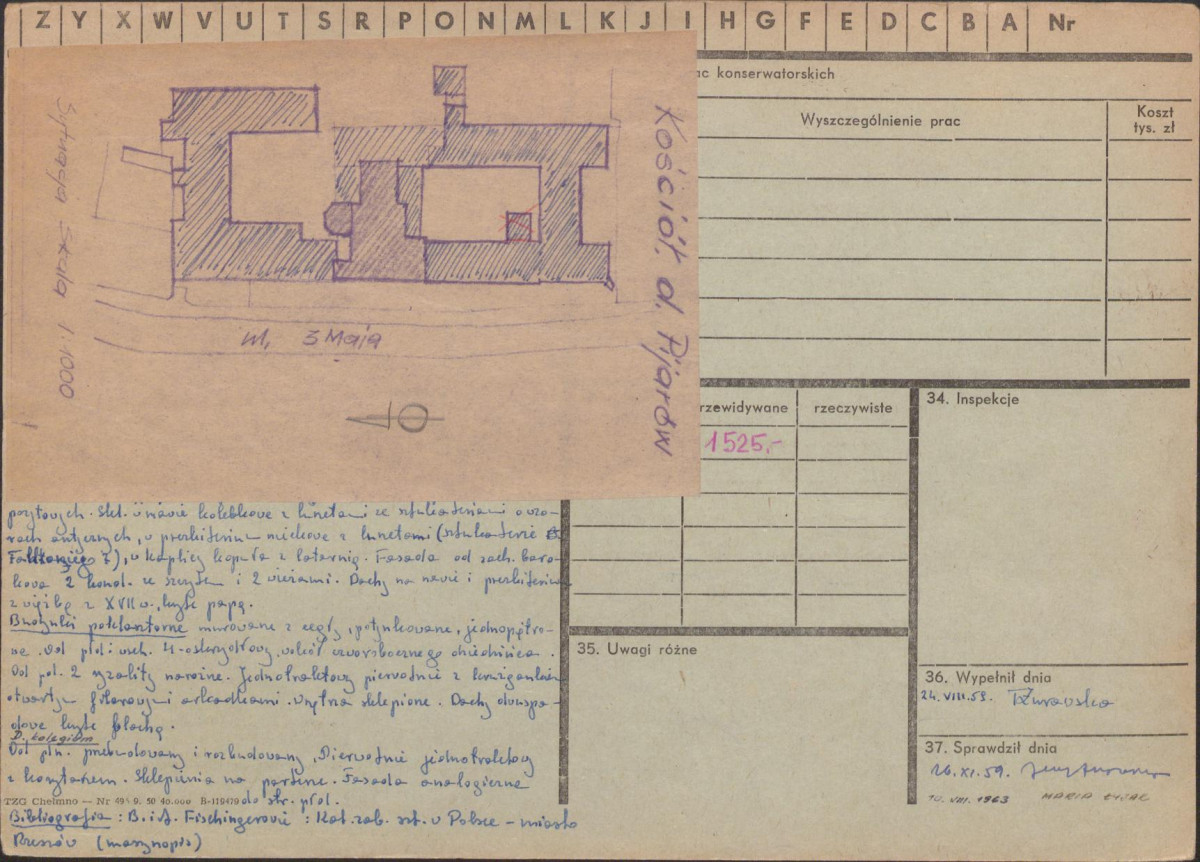 Z Y X W V U T S R P O N M L K J I H G F E D C B A Nr
Sytuacja Skala 1:1000
Kościół d. Pijarów
ul. 3 Maja
ac konserwatorskich
Wyszczególnienie prac
Koszt
tys. zł
rzewidywane
rzeczywiste
1525,-
34. Inspekcje
35. Uwagi różne
36. Wypełnił dnia
24. VIII. 59.
37. Sprawdził dnia
26. XI. 59.
10. VIII. 1963
w kaplicy kopuła z latarnią. Fasada od zach. baro-
kowa 2 kond. ze szczytem i 2 wieżami. Dachy na nawie i prezbiterium
z więźbą z XVII w., kryte papą.
Budynki poklasztorne murowane z cegły, potynkowane, jednopiętro-
we. Od płd. i wsch. 4-oskrzydłowy, wokół czworobocznego dziedzińca.
Od pół. 2 ryzality narożne. Jednotraktowy pierwotnie z krużgankiem
otwartym filarowymi arkadkami. Wnętrza sklepione. Dachy dwuspa-
dowe kryte blachą.
D. kolegium
Od płn. przebudowany i rozbudowany. Pierwotnie jednotraktowy
z korytarzem. Sklepienia na parterze. Fasada analogiczna
TZG Chełmno — Nr 495 9. 50 40.000 B-119479
do str. płd.
Bibliografia: B. i A. Fischingerowie: Kat. zab. szt. w Polsce - miasto
Rzeszów (maszynopis)